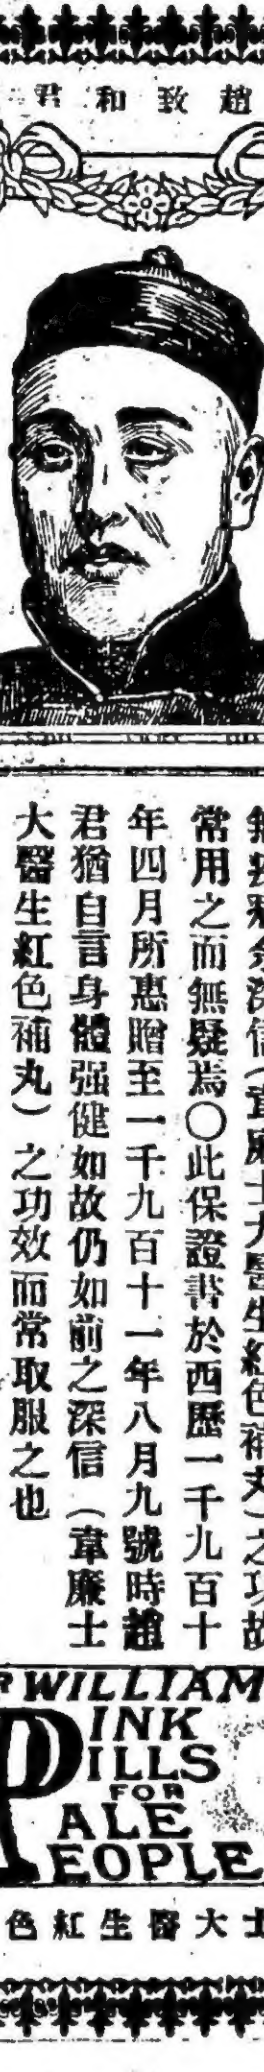 趙致和君
深信（韋廉士大醫生紅色補丸）之功故
常用之而無疑焉〇此保證書於西歷一千九百十
年四月所惠贈至一千九百十一年八月九號時趙
君猶自言身體强健如故仍如前之深信（韋廉士
大醫生紅色補丸）之功效而常取服之也
WILLIAM
PINK
PILLS
FOR
PALE
PEOPLE
士大醫生紅色